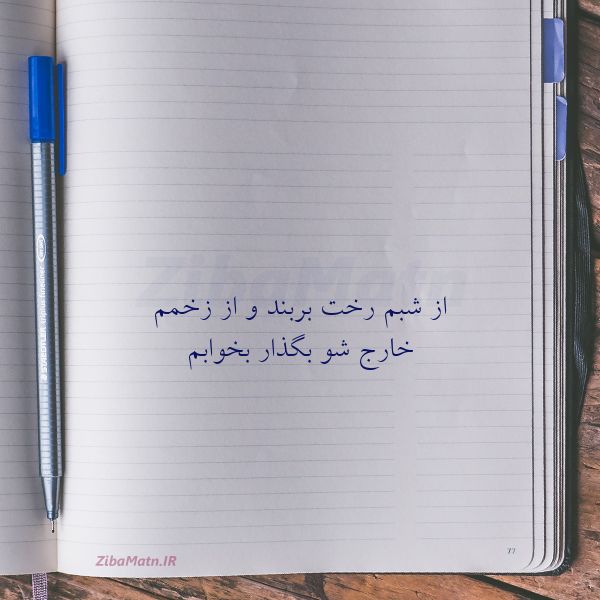 ZibaMatn
از شبم رخت بربند و از زخمم
خارج شو بگذار بخوابم
ZibaMatn.IR
77